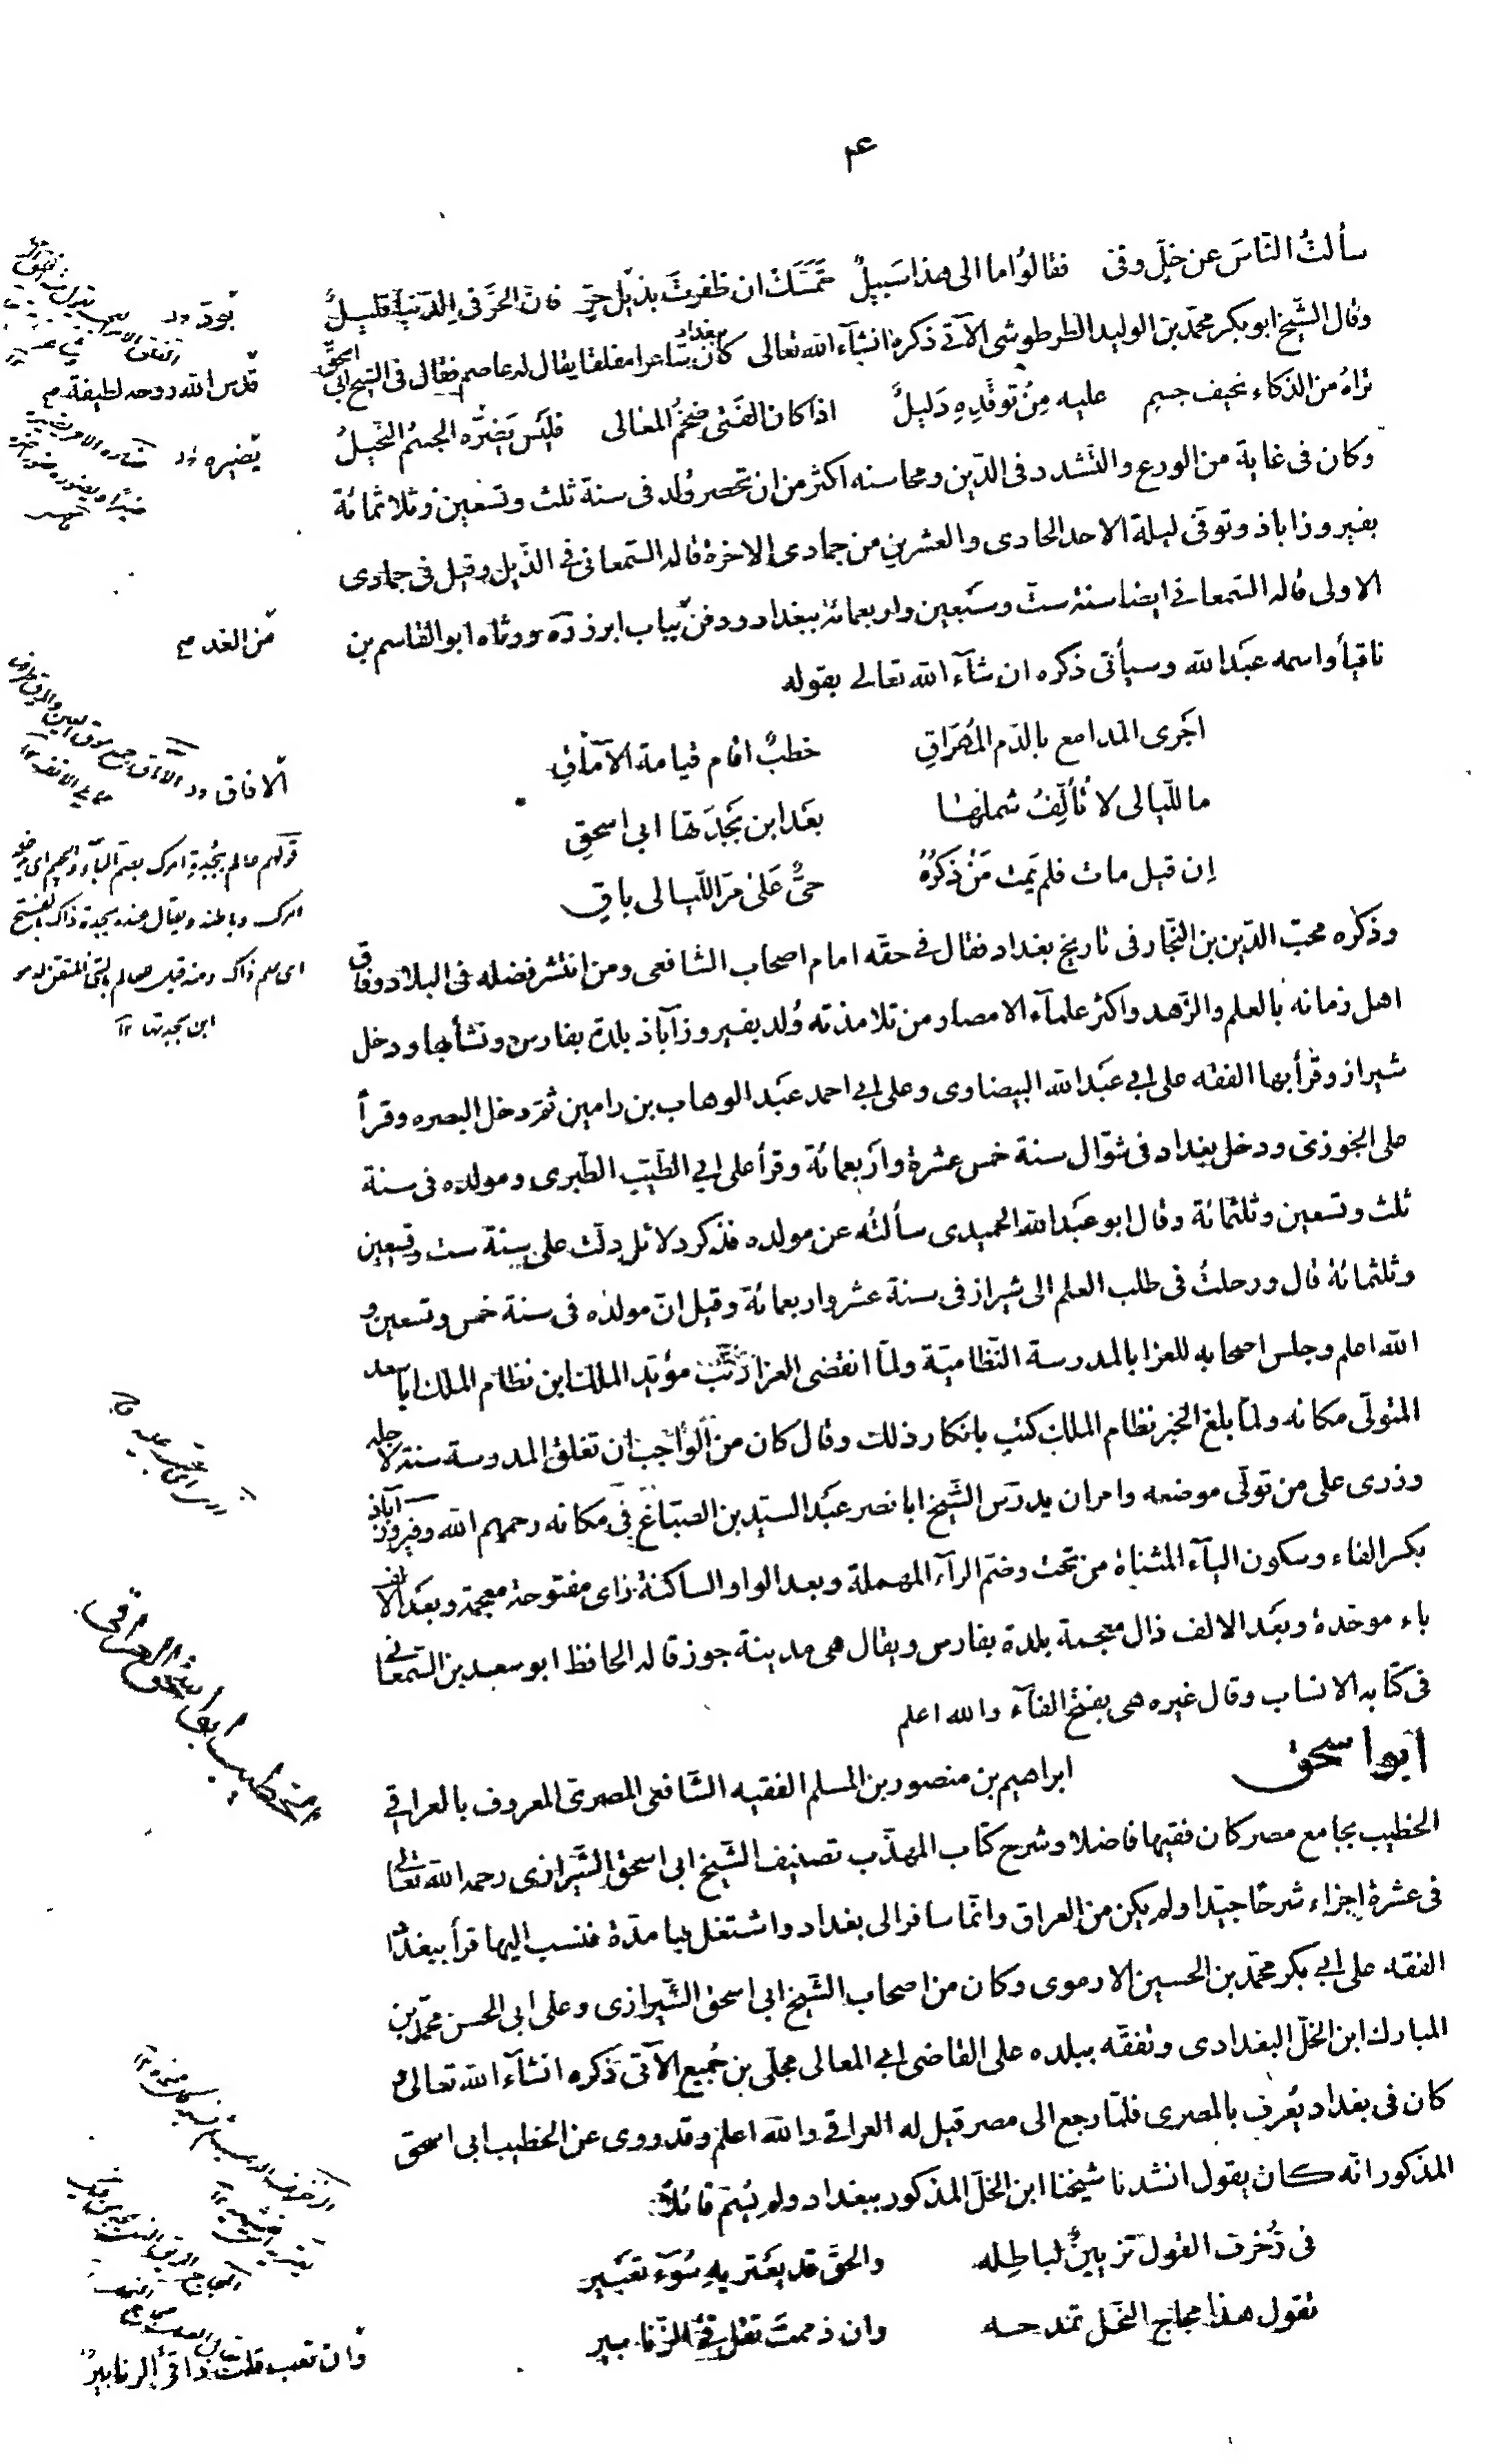 ۴
سألتُ النّاسَ عن خلٍّ وفىّ فقالوُا ما الى هذا سَبيلٌ تمَسَّكْ ان ظفرتَ بذيل حرٍّ فان الحرَّ فى الدّنيا قليلُ
وقال الشّيخ ابو بكر محمّد بن الوليد الطرطوشى الآتى ذكره انشآء الله تعالى كان ببغداد شاعرا مفلقا يقال له عاصم فقال فى الشيخ ابى اسحٰق
تراهُ من الذّكاء نحيف جسمٍ عليه مِنْ توقّدِهِ دَليلُ اذا كان الفتى ضخمُ المعالى فليَس يَضرُّه الجسمُ النّحيلُ
وكان فى غاية من الورع والتّشدد فى الدّين ومحاسنه اكثر من ان تحصر وُلد فى سنة ثلث وتسعين وثلاثمائة
بفيروزاباذ وتوفّى ليلة الاحد الحادى والعشرين من جمادى الاخرة قاله السّمعانى فى الذّيل وقيل فى جمادى
الاولى قاله السّمعانى ايضا سنة ستّ وسَبعين واربعمائة ببغداد ودفن بباب ابرز ورثاه ابو القاسم بن
ناقيأ واسمه عبَد الله وسيأتى ذكره ان شآء الله تعالى بقوله
اجَرى المدامع بالدّم المُهَراقِ خطبٌ اقام قيامة الآماقِ
ما للّيالى لا تُألِّفُ شملها بعَد ابن بَجدَتها ابى اسحقِ
اِن قيل مات فلم يَمت مَنْ ذكرُهُ حىٌّ عَلىٰ مرّ اللّيالى باقِ
وذكره محبّ الدّين بن النّجار فى تاريخ بغداد فقال فى حقه امام اصحاب الشافعى ومن انتشر فضله فى البلاد وفاق
اهل زمانه بالعلم والزّهد واكثر علمآء الامصار من تلامذته وُلد بفيروزآباذ بلدة بفارس ونشأ بها ودخل
شيراز وقرأ بها الفقه على ابى عبَد الله البيضاوى وعلى ابى احمد عبَد الوهاب بن رامين ثم دخل البصره وقرأ
على الخوزى ودخل بغداد فى شوّال سنة خمس عشرة واربعمائة وقرأ على ابى الطّيّب الطّبرى ومولده فى سنة
ثلث وتسعين وثلثمائة وقال ابو عبَد الله الحميدى سألتُه عن مولده فذكر دلائل دلّت على سنة ست وتسعين
وثلثمائة قال ورحلتُ فى طلب العلم الى شيراز فى سنة عشر واربعمائة وقيل انّ مولده فى سنة خمس وتسعين و
الله اعلم وجلس اصحابه للعزا بالمدرسة النّظاميّة ولمّا انقضى العزا رتّب مؤيّد الملك ابن نظام الملك ابا سعد
المتولّى مكانه ولمّا بلغ الخبر نظام الملك كتب بانكار ذلك وقال كان من الواجب ان تغلق المدرسة سنة لاجله
وزرى على من تولّى موضعه وامر ان يدرّس الشّيخ ابا نصر عبَد السيّد بن الصبّاغ فى مكانه رحمهم الله وفيروزآباذ
بكسر الفاء وسكون اليآء المثناة من تحت وضم الرآء المهملة وبعد الواو الساكنة زاى مفتوحة معجمة وبعَد الالف
باء موحّدة وبعَد الالف ذال معجمة بلدة بفارس ويقال هى مدينة جوز قاله الحافظ ابو سعيد بن السّمعانى
فى كتابه الانساب وقال غيره هى بفتح الفآء والله اعلم
ابو اسحق ابراهيم بن منصور بن المسلم الفقيه الشّافعى المصرى المعروف بالعراقى
الخطيب بجامع مصر كان فقيها فاضلا وشرح كتاب المهذّب تصنيف الشّيخ ابى اسحق الشّيرازى رحمه الله تعالى
فى عشرة اجزاء شرحًا جيّدا ولم يكن من العراق وانّما سافر الى بغداد واشتغل بها مدّة فنسب اليها قرأ ببغداد
الفقه على ابى بكر محمّد بن الحسين الارموى وكان من اصحاب الشّيخ ابى اسحق الشّيرازى وعلى ابى الحسن محمّد بن
المبارك ابن الخلّ البغدادى وتفقّه ببلده على القاضى ابى المعالى مجلّى بن جُميع الآتى ذكره انشآء الله تعالى و
كان فى بغداد يُعرف بالمصرى فلمّا رجع الى مصر قيل له العراقى والله اعلم وقد روى عن الخطيب ابى اسحق
المذكور انّه كان يقول انشدنا شيخنا ابن الخلّ المذكور ببغداد ولم يُسَمّ قائلاً
فى زُخرف القول تزيينٌ لباطِله والحقّ قد يعَتريهِ سُوَء تعبَير
تقول هذا مجاج النّحل تمدحه وان ذممتَ تقل قئُ الزّنابير
توقّد
قدّس الله روحه لطيفة
يضيره
من الغد
الافاق
قولهم عالم بجُدة امرك بضم البآء والجيم اى
امرك وباطنه ويقال عنده بجدة ذاك بالفتح
اى علم ذاك ومنه قيل للعالم بالشئ المتقن له هو
ابن بجدتها
الخطيب ابو اسحٰق العراقى
وان تعب قلت ذا قئ الزنابيرِ